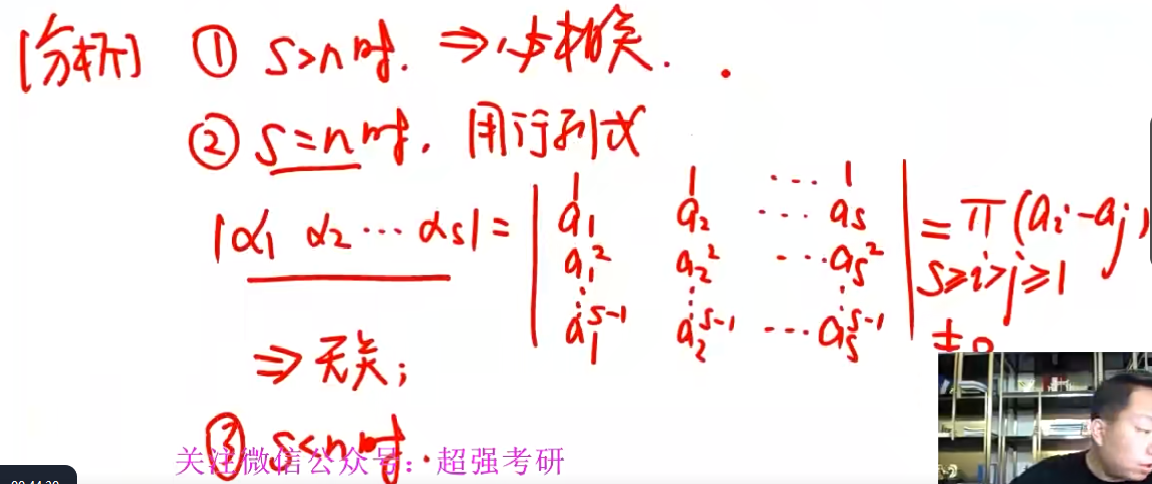 [分析] ① s>n时. ⇒必相关.
② s=n时. 用行列式
|α₁ α₂ ⋯ αs| = | 1 1 ⋯ 1
a₁ a₂ ⋯ as
a₁² a₂² ⋯ as²
⋮ ⋮ ⋮
a₁^{s-1} a₂^{s-1} ⋯ as^{s-1} | = π (ai-aj)
s≥i>j≥1
≠0
⇒ 无关;
③ s<n时.
关注微信公众号：超强考研